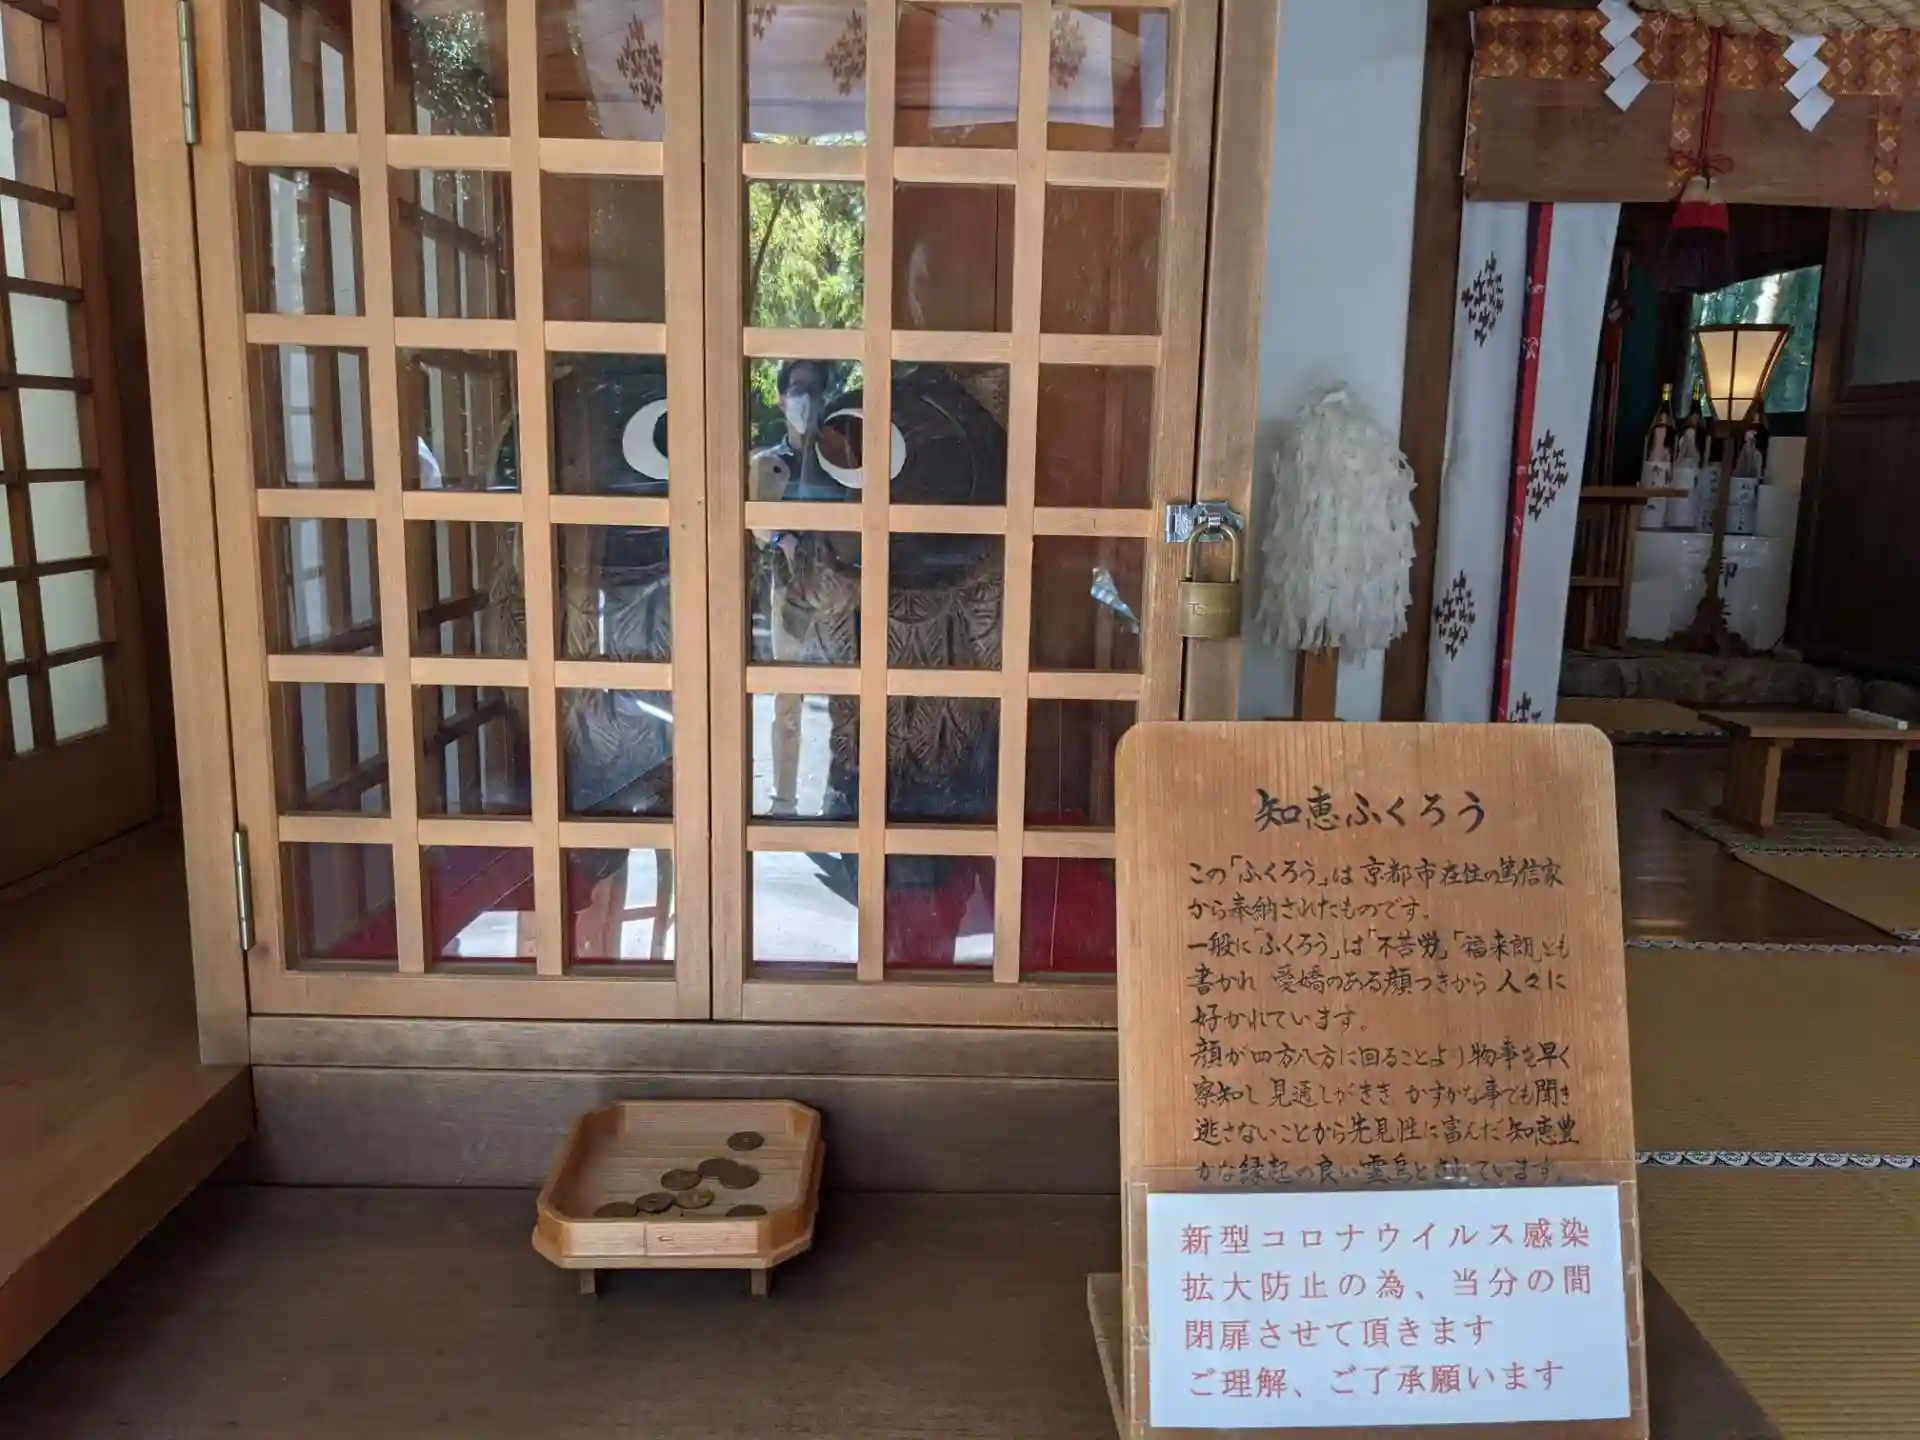 知恵ふくろう
この「ふくろう」は京都市在住の篤信家
から奉納されたものです。
一般に「ふくろう」は「不苦労」「福来朗」とも
書かれ 愛嬌のある顔つきから人々に
好かれています。
顔が四方八方に回ることより物事を早く
察知し見通しがきき かすかな事でも聞き
逃さないことから先見性に富んだ知恵豊
かな縁起の良い霊鳥とされています。
新型コロナウイルス感染
拡大防止の為、当分の間
閉扉させて頂きます
ご理解、ご了承願います